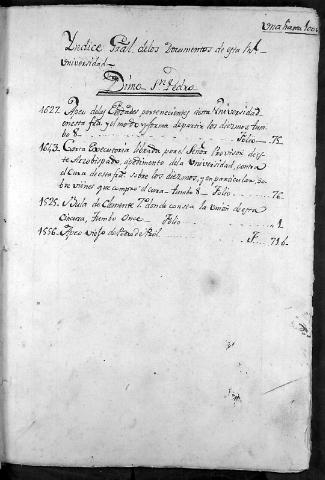 Yndice Gral. delos Documentos de esta
Universidad
Dimo Sn. Pedro
1627. Apeo delas Heredades pertenecientes a esta Universidad
en esta fra. y el modo y forma de partir los diezmos, tum-
bo 8 Folio 75.
1643. Carta Executoria librada por el Señor Provisor de es-
te Arzobispado, a pedimento de la Universidad, contra
el Cura de esta fra. sobre los diezmos, y en particular, so-
bre vienes que compro el cura tumbo 8 Folio 76.
1525. Bula de Clemente 7.º donde consta la union de esta
Tumbo Once Folio 1.
1556. Apeo viejo de
F. 736.